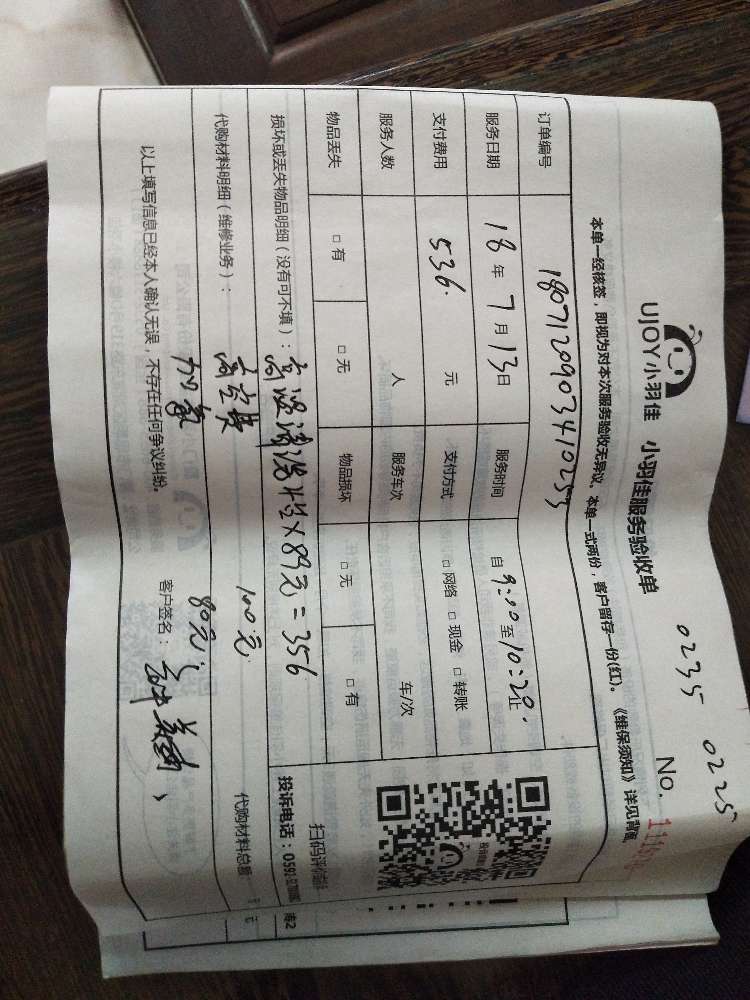 0235 0225
UJOY小羽佳 小羽佳服务验收单 No.
本单一经核签，即视为对本次服务验收无异议。本单一式两份，客户留存一份(红)。《维保须知》详见背面
订单编号 180712090341025
服务日期 18年7月13日 服务时间 自9:00至10:20止
支付费用 536.元 支付方式 □网络 □现金 □转账
服务人数 人 服务车次 车/次
物品丢失 □有 □无 物品损坏 □无 □有
扫码评价
损坏或丢失物品明细（没有可不填）：高温清洗 ×89元=356
投诉电话：0592
代购材料明细（维修业务）： 高空费 100元
代购材料总额 元
加氟 80元
以上填写信息已经本人确认无误，不存在任何争议纠纷。 客户签名：